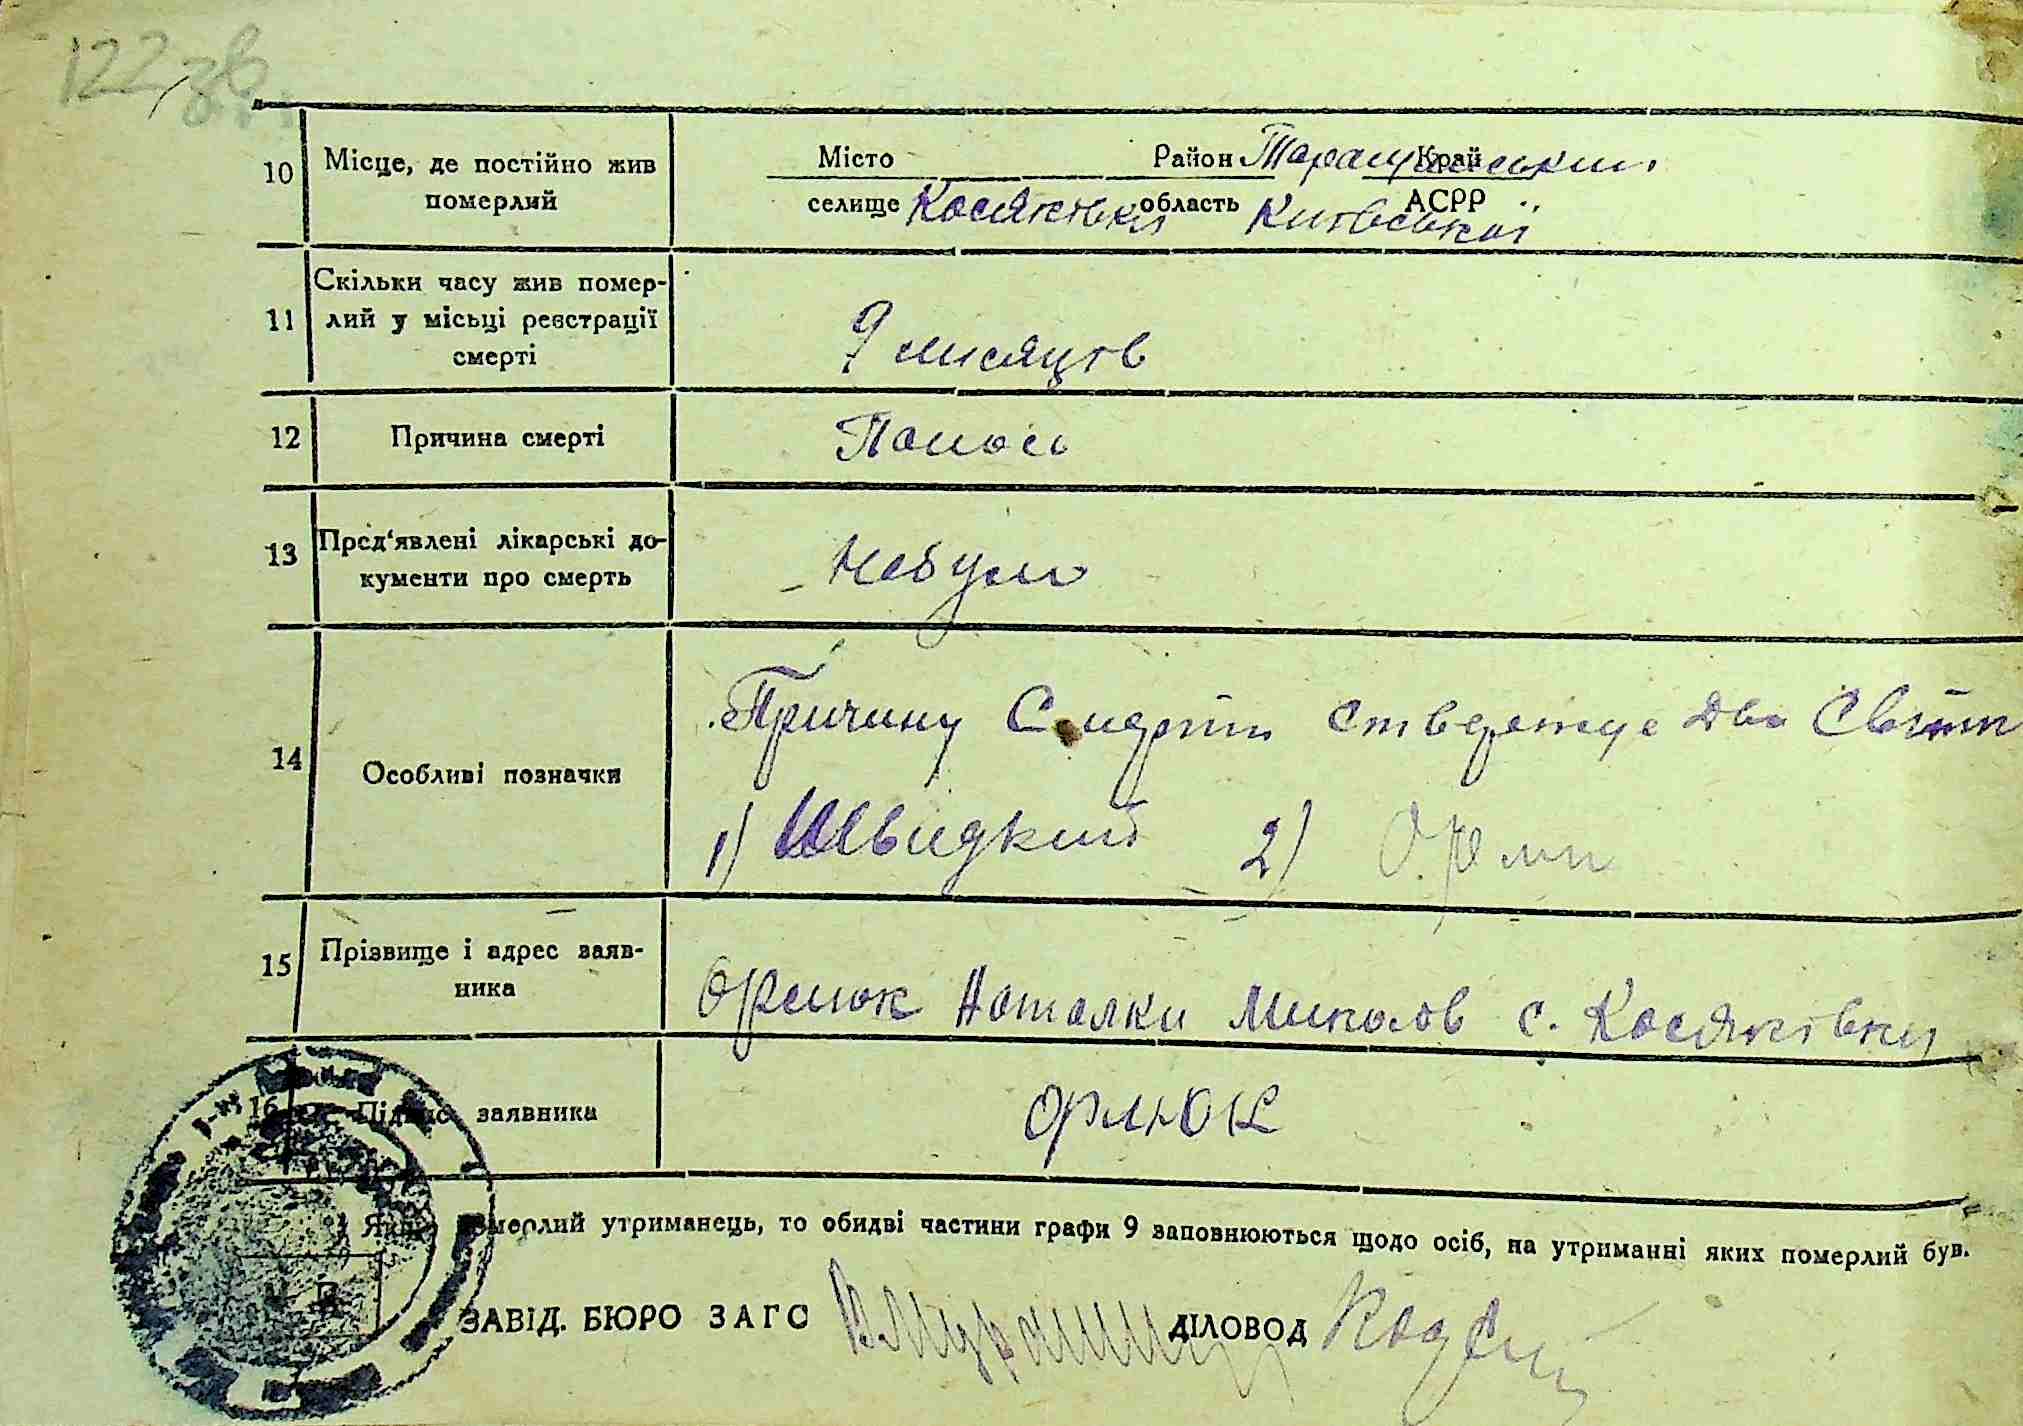 122 зв.
10 Місце, де постійно жив померлий
Місто Район Таращанський Край
селище Косяківка область Київської АСРР
11 Скільки часу жив помер-
лий у місьці реєстрації
смерті
9 місяців
12 Причина смерті
Понос
13 Пред'явлені лікарські до-
кументи про смерть
Небуло
14 Особливі позначки
Причину Смерти стверджує два
1) Швидкий 2)
15 Прізвище і адрес заяв-
ника
Орлюк Наталки Миколов с. Косяківки
16 Підпис заявника
Орлюк
Якщо померлий утриманець, то обидві частини графи 9 заповнюються щодо осіб, на утриманні яких померлий був.
ЗАВІД. БЮРО ЗАГС ДІЛОВОД